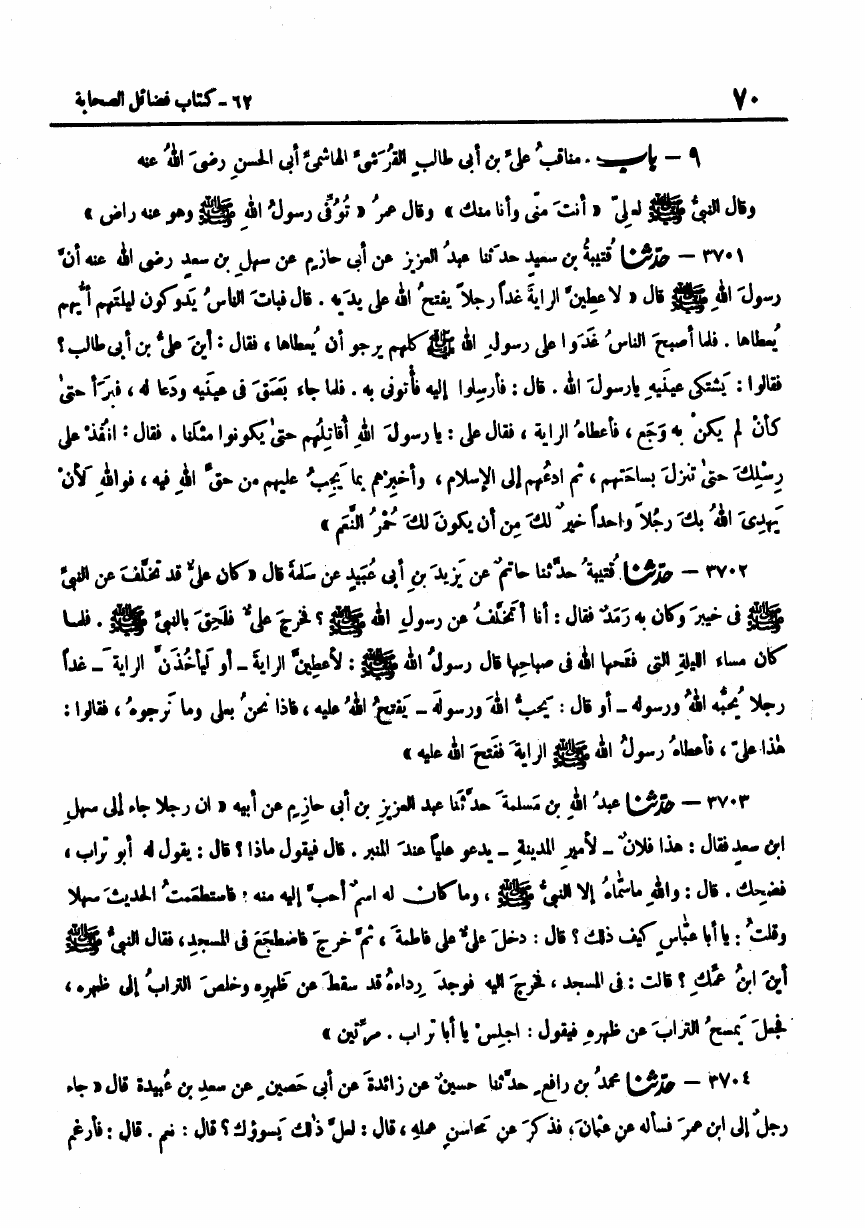 ٧٠
٦٢ - كتاب فضائل الصحابة
٩ - باب . مناقبُ علىِّ بن أبى طالبٍ القُرَشىِّ الهاشمىِّ أبى الحسنِ رضىَ اللهُ عنه
وقال النبىُّ ﷺ لعلىّ « أنتَ منّى وأنا منك » وقال عمرُ « تُوُفِّى رسولُ اللهِ ﷺ وهو عنه راض »
٣٧٠١ - حدّثنا قُتيبةُ بن سعيدٍ حدثنا عبدُ العزيز عن أبى حازمٍ عن سهل بن سعدٍ رضى الله عنه أنَّ
رسولَ اللهِ ﷺ قال « لاعطِينَّ الرايةَ غداً رجلاً يفتحُ الله على يديه . قال فباتَ الناسُ يَدوكون ليلتَهم أيُّهم
يُعطاها . فلما أصبحَ الناسُ غدَوا على رسولِ الله ﷺ كلهم يرجو أن يُعطاها ، فقال : أينَ علىُّ بن أبى طالب ؟
فقالوا : يَشتكى عينَيهِ يارسولَ الله . قال : فأرسِلوا إليه فأتونى به . فلما جاء بَصَقَ فى عينَيه ودَعا له ، فبرَأ حتىٰ
كأنْ لم يكنْ به وَجَع ، فأعطاهُ الراية ، فقال على : يا رسولَ اللهِ أقاتِلُهم حتىٰ يكونوا مثلَنا . فقال : انفُذْ على
رِسْلِكَ حتىٰ تنزلَ بساحَتهم ، ثم ادعُهم إلى الإسلام ، وأخبِرْهم بما يَجِبُ عليهم من حقَّ اللهِ فيه ، فواللهِ لأنْ
يَهدِىَ اللهُ بكَ رجُلاً واحداً خيرٌ لكَ مِن أن يكونَ لكَ حُمْرُ النَّعَم »
٣٧٠٢ - حدّثنا قُتيبةُ حدَّثنا حاتمٌ عن يَزيدَ بنِ أبى عُبَيدٍ عن سَلمةَ قال « كان علىٌّ قد تخلَّفَ عن النبىِّ
ﷺ فى خيبرَ وكان به رَمَدٌ فقال : أنا أتخلَّفُ عن رسولِ الله ﷺ ؟ فخرجَ علىٌّ فلَحِقَ بالنبىِّ ﷺ . فلما
كان مساء الليلةِ التى فتَحها الله فى صباحِها قال رسولُ الله ﷺ : لأعطِينَّ الرايةَ - أو لَيأخُذَنَّ الرايةَ - غداً
رجلا يُحبُّه اللهُ ورسوله - أو قال : يُحبُّ اللهَ ورسولَه - يَفتحُ اللهُ عليه ، فاذا نحنُ بعلى وما نَرجوهُ ، فقالوا :
هٰذا علىّ ، فأعطاهُ رسولُ الله ﷺ الرايةَ ففَتحَ الله عليه »
٣٧٠٣ - حدّثنا عبدُ اللهِ بن مَسلمةَ حدَّثَنا عبد العزيزِ بن أبى حازمٍ عن أبيه « ان رجلا جاء إلى سهلِ
ابن سعدٍ فقال : هذا فلانٌ - لأميرِ المدينةِ - يدعو علياً عندَ المنبر . قال فيقول ماذا ؟ قال : يقول له أبو تراب ،
فضحِك . قال : واللهِ ماسّماهُ إلا النبىُّ ﷺ ، وما كان له اسمٌ أحبَّ إليه منه ؛ فاستطعَمتُ الحديثَ سهلا
وقلتُ : يا أبا عبّاسٍ كيف ذلك ؟ قال : دخلَ علىٌّ على فاطمةَ ، ثمَّ خرجَ فاضطجَعَ فى المسجدِ ، فقال النبىُّ ﷺ
أينَ ابنُ عمِّكِ ؟ قالت : فى المسجد ، فخرجَ اليه فوجدَ رِداءهُ قد سقطَ عن ظَهرِه وخلصَ الترابُ إلى ظهره ،
فجعلَ يَمسحُ الترابَ عن ظهرهِ فيقول : اجلِسْ يا أبا تراب . مرّتين »
٣٧٠٤ - حدّثنا محمدُ بن رافعٍ حدثنا حسينٌ عن زائدةَ عن أبى حَصينٍ عن سعدِ بن عُبيدة قال « جاء
رجلٌ إلى ابن عمرَ فسأله عن عثمانَ ، فذكرَ عن محاسنِ عملهِ ، قال : لعلَّ ذٰلك يَسوؤك ؟ قال : نعم . قال : فأرغم